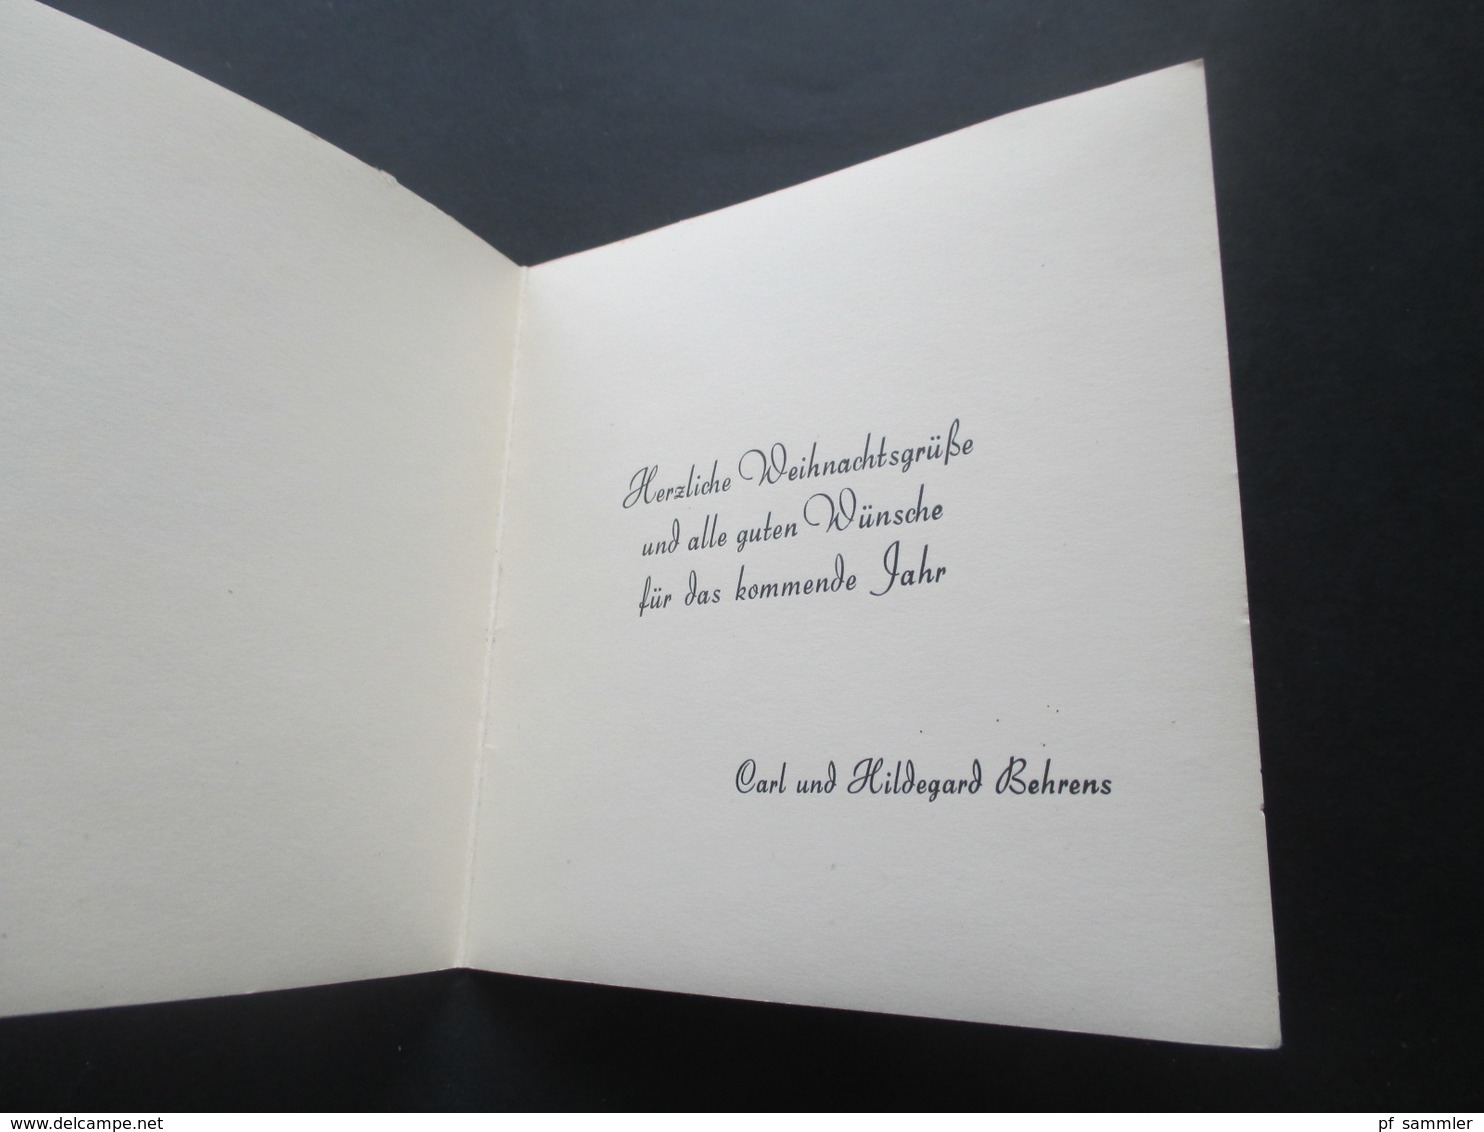 Herzliche Weihnachtsgrüße
und alle guten Wünsche
für das kommende Jahr
Carl und Hildegard Behrens
www.delcampe.net
pf_sammler